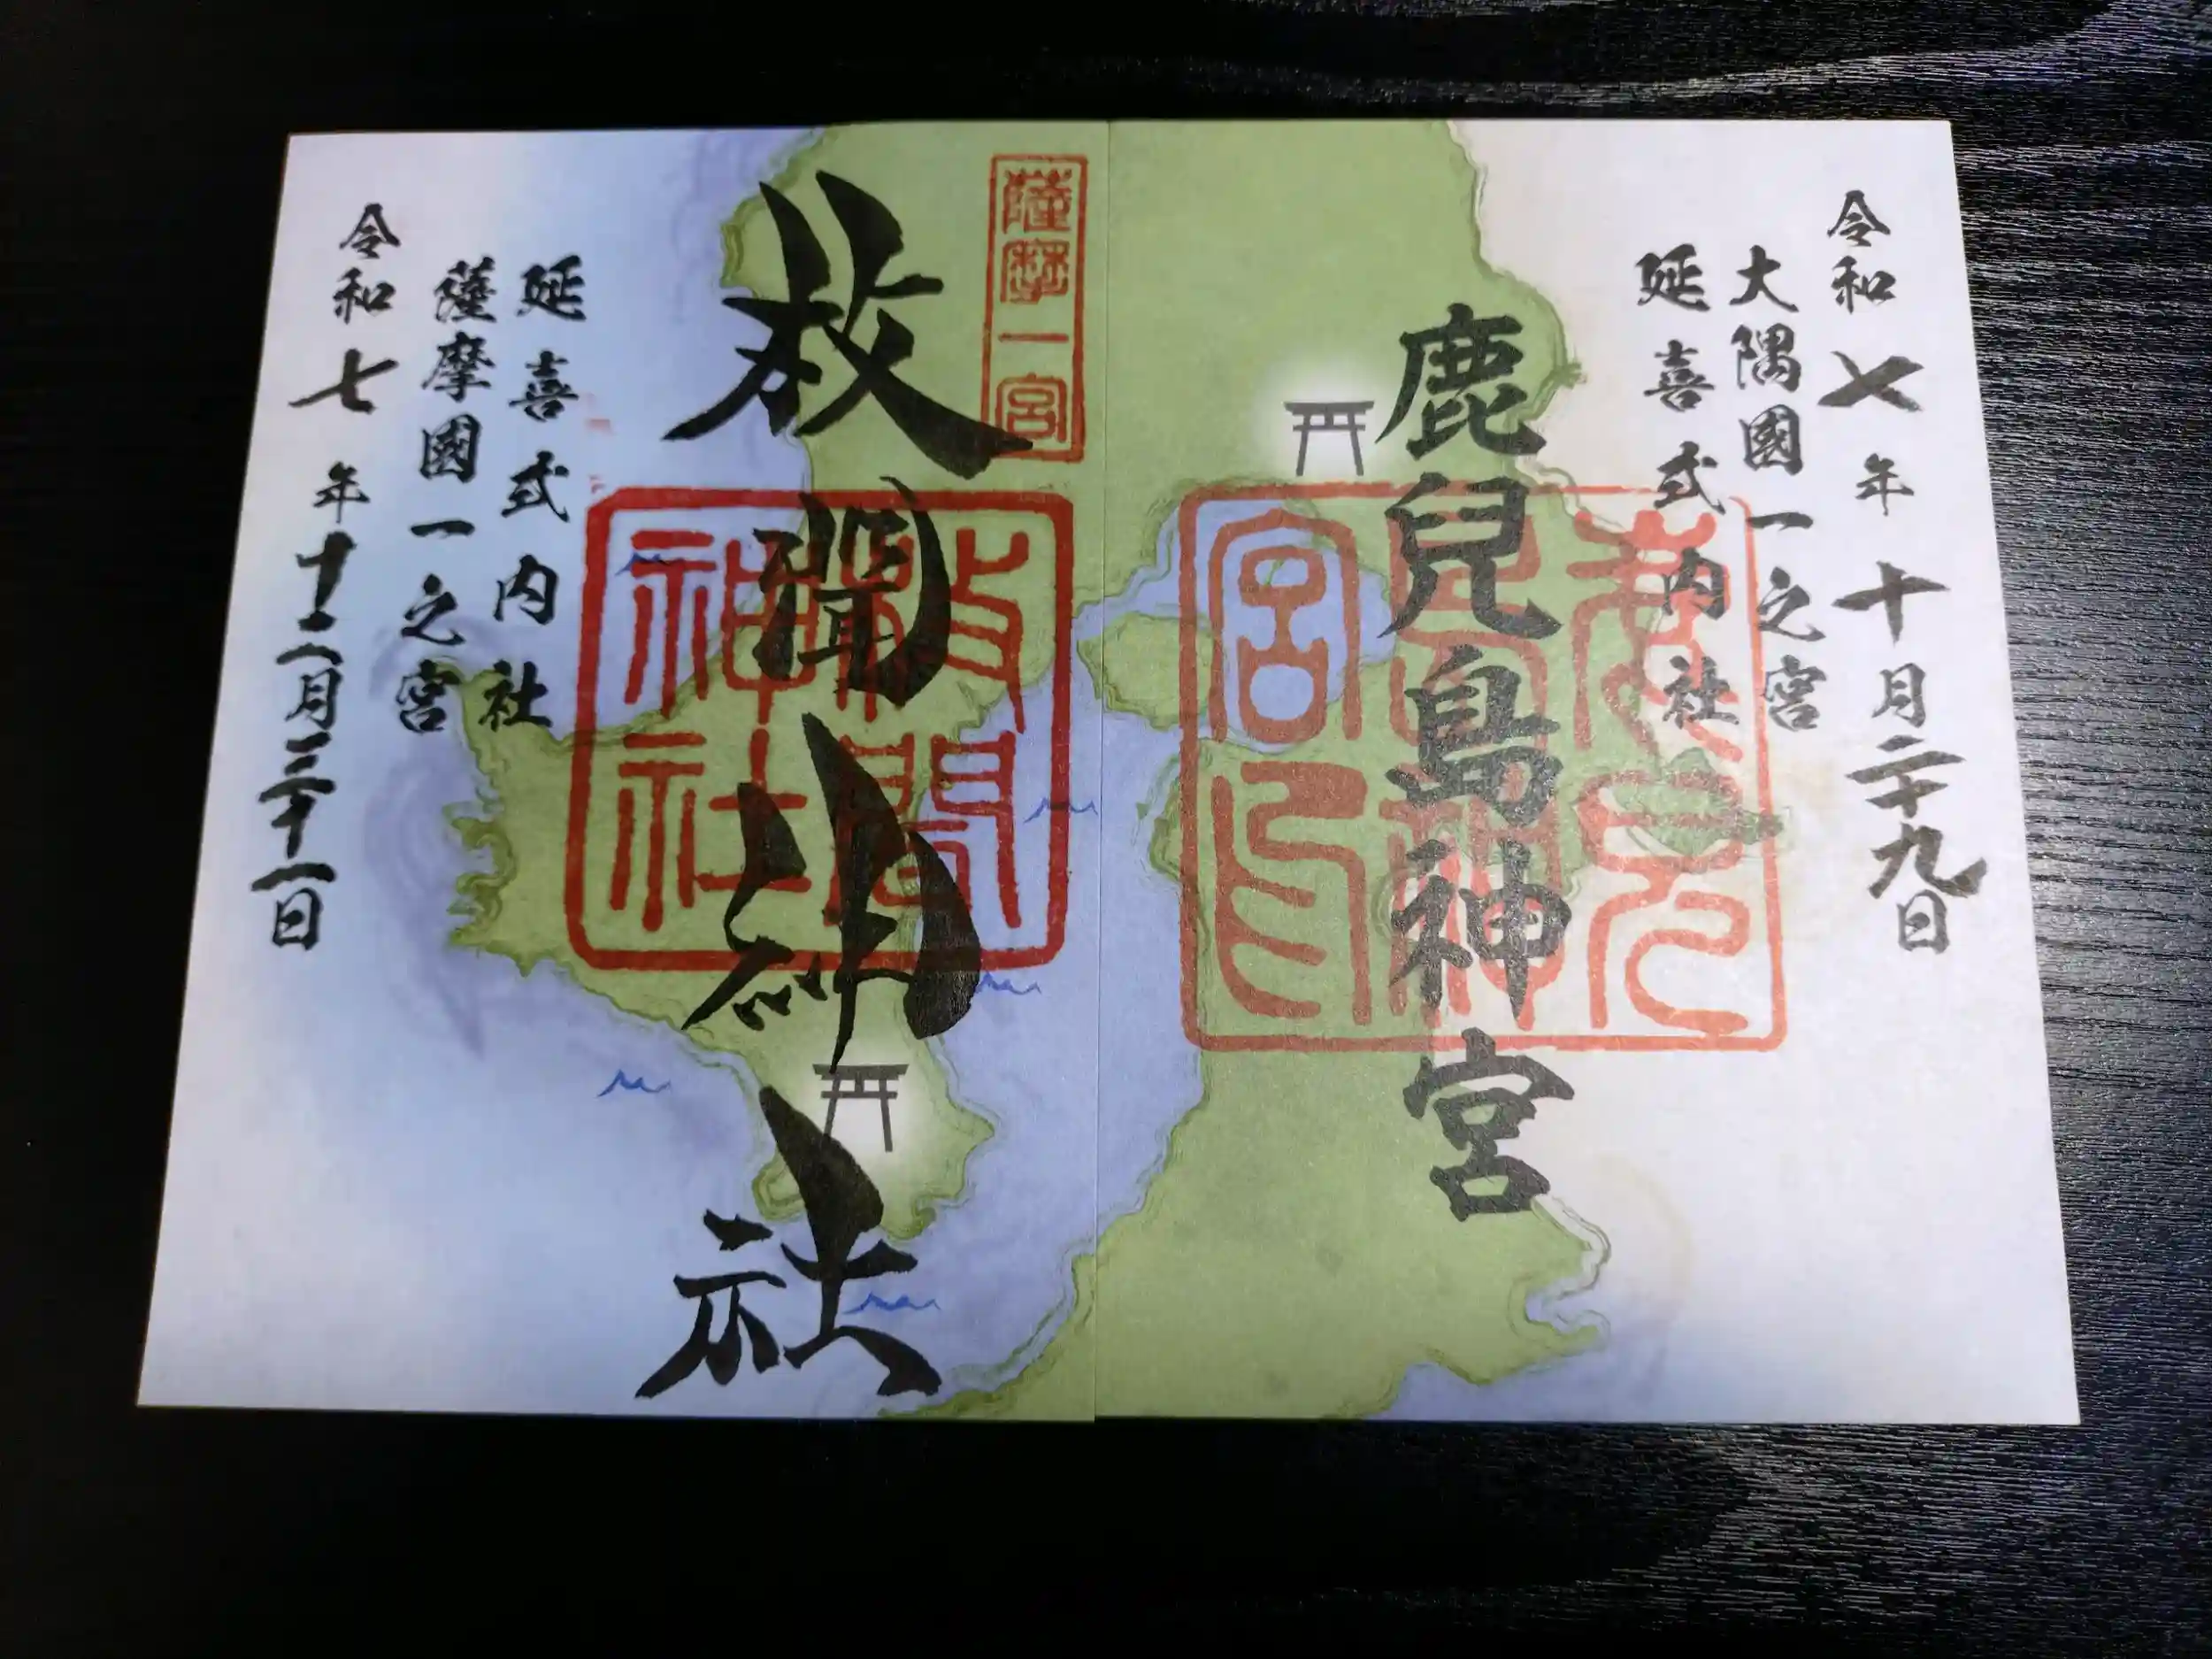 令和七年十月二十九日
大隅國一之宮
延喜式内社
鹿兒島神宮
鹿兒
島神
宮印
薩摩一宮
枚聞神社
枚聞
神社
延喜式内社
薩摩國一之宮
令和七年十二月三十一日